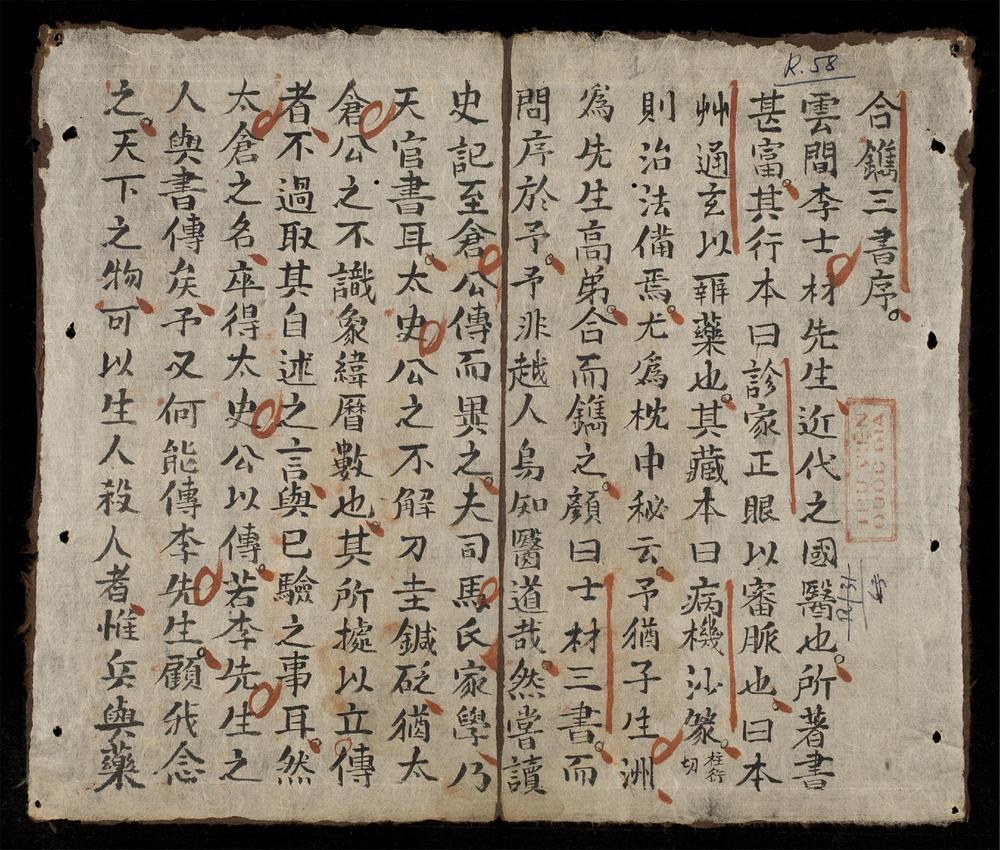 R.58
合鐫三書序
雲間李士材先生近代之國醫也所著書
甚富其行本曰診家正眼以審脈也曰本
艸通玄以辨藥也其藏本曰病機沙篆柱衍切
則治法備焉尤為枕中秘云予猶子生洲
為先生高弟合而鐫之顔曰士材三書而
問序於予予非越人烏知醫道哉然嘗讀
史記至倉公傳而異之夫司馬氏家學乃
天官書耳太史公之不解刀圭鍼砭猶太
倉公之不識象緯曆數也其所據以立傳
者不過取其自述之言與已驗之事耳然
太倉之名卒得太史公以傳若李先生之
人與書傳矣予又何能傳李先生顧我念
之天下之物可以生人殺人者惟兵與藥
THU VIEN
QUOC GIA